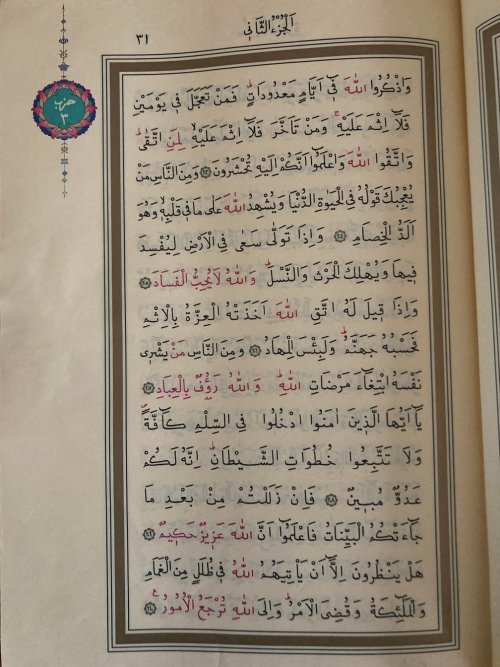 اَلْجُزْءُ الثَّانِي
٣١
حزب
٣
وَاذْكُرُوا اللّٰهَ فِٓي اَيَّامٍ مَعْدُودَاتٍۜ فَمَنْ تَعَجَّلَ فِي يَوْمَيْنِ
فَلَٓا اِثْمَ عَلَيْهِۚ وَمَنْ تَاَخَّرَ فَلَٓا اِثْمَ عَلَيْهِۙ لِمَنِ اتَّقٰىۜ
وَاتَّقُوا اللّٰهَ وَاعْلَمُٓوا اَنَّكُمْ اِلَيْهِ تُحْشَرُونَ ﴿٢٠٣﴾ وَمِنَ النَّاسِ مَنْ
يُعْجِبُكَ قَوْلُهُ فِي الْحَيٰوةِ الدُّنْيَا وَيُشْهِدُ اللّٰهَ عَلٰى مَا فِي قَلْبِهِۙ وَهُوَ
اَلَدُّ الْخِصَامِ ﴿٢٠٤﴾ وَاِذَا تَوَلّٰى سَعٰى فِي الْاَرْضِ لِيُفْسِدَ
فِيهَا وَيُهْلِكَ الْحَرْثَ وَالنَّسْلَۜ وَاللّٰهُ لَا يُحِبُّ الْفَسَادَ ﴿٢٠٥﴾
وَاِذَا قِيلَ لَهُ اتَّقِ اللّٰهَ اَخَذَتْهُ الْعِزَّةُ بِالْاِثْمِ
فَحَسْبُهُ جَهَنَّمُۜ وَلَبِئْسَ الْمِهَادُ ﴿٢٠٦﴾ وَمِنَ النَّاسِ مَنْ يَشْرِي
نَفْسَهُ ابْتِغَٓاءَ مَرْضَاتِ اللّٰهِۜ وَاللّٰهُ رَؤُ۫فٌ بِالْعِبَادِ ﴿٢٠٧﴾
يَٓا اَيُّهَا الَّذِينَ اٰمَنُوا ادْخُلُوا فِي السِّلْمِ كَٓافَّةًۖ
وَلَا تَتَّبِعُوا خُطُوَاتِ الشَّيْطَانِۜ اِنَّهُ لَكُمْ
عَدُوٌّ مُبِينٌ ﴿٢٠٨﴾ فَاِنْ زَلَلْتُمْ مِنْ بَعْدِ مَا
جَٓاءَتْكُمُ الْبَيِّنَاتُ فَاعْلَمُٓوا اَنَّ اللّٰهَ عَزِيزٌ حَكِيمٌ ﴿٢٠٩﴾
هَلْ يَنْظُرُونَ اِلَّٓا اَنْ يَأْتِيَهُمُ اللّٰهُ فِي ظُلَلٍ مِنَ الْغَمَامِ
وَالْمَلٰٓئِكَةُ وَقُضِيَ الْاَمْرُۜ وَاِلَى اللّٰهِ تُرْجَعُ الْاُمُورُ۟ ﴿٢١٠﴾